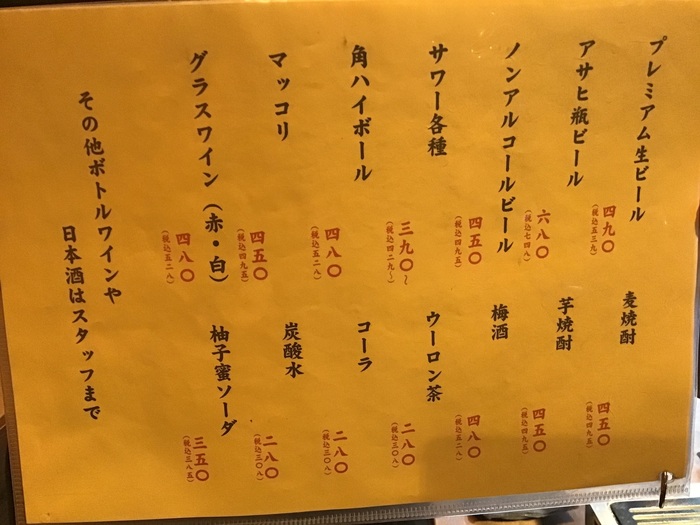 プレミアム生ビール
四九〇
(税込五三九)
アサヒ瓶ビール
六八〇
(税込七四八)
ノンアルコールビール
四五〇
(税込四九五)
サワー各種
三九〇〜
(税込四二九〜)
角ハイボール
四八〇
(税込五二八)
マッコリ
四五〇
(税込四九五)
グラスワイン（赤・白）
四八〇
(税込五二八)
麦焼酎
四五〇
(税込四九五)
芋焼酎
四五〇
(税込四九五)
梅酒
四八〇
(税込五二八)
ウーロン茶
二八〇
(税込三〇八)
コーラ
二八〇
(税込三〇八)
炭酸水
二八〇
(税込三〇八)
柚子蜜ソーダ
三五〇
(税込三八五)
その他ボトルワインや
日本酒はスタッフまで